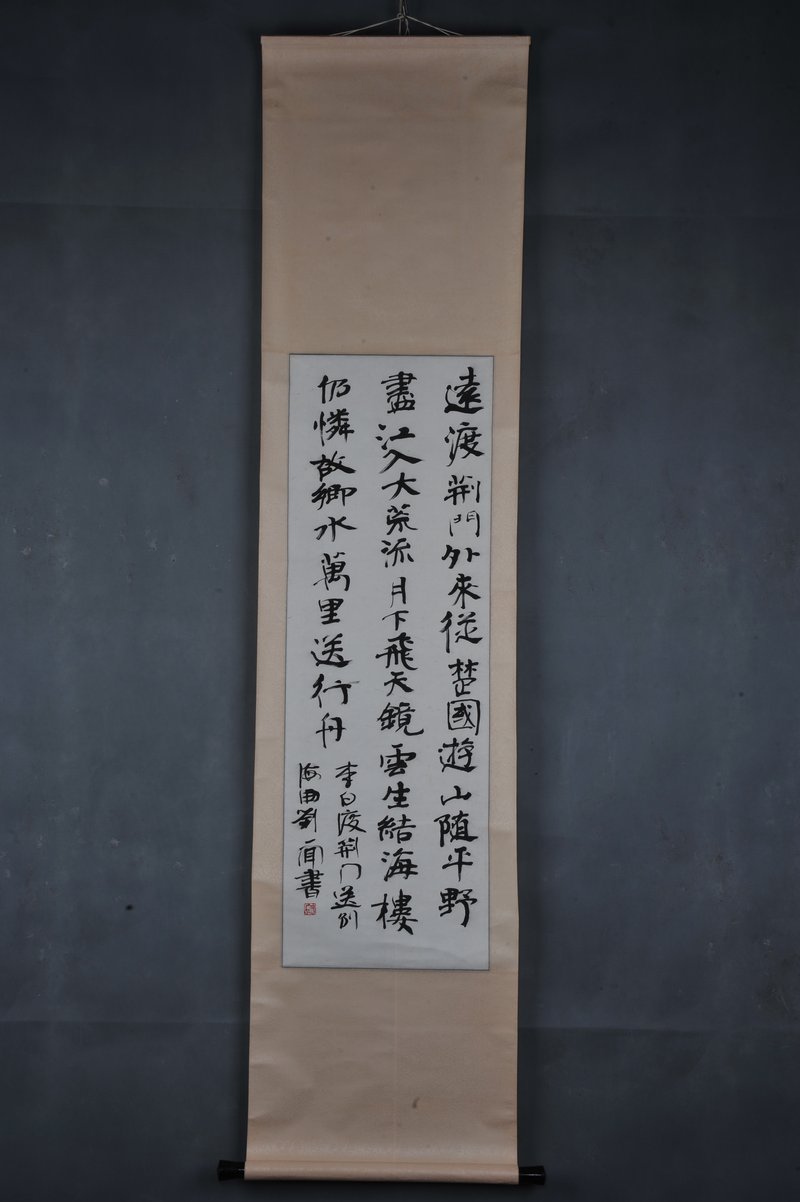 遠渡荆門外来從楚國遊山随平野
盡江入大荒流月下飛天鏡雲生結海樓
仍憐故鄉水萬里送行舟
李白渡荆门送别
海曲劉甫書